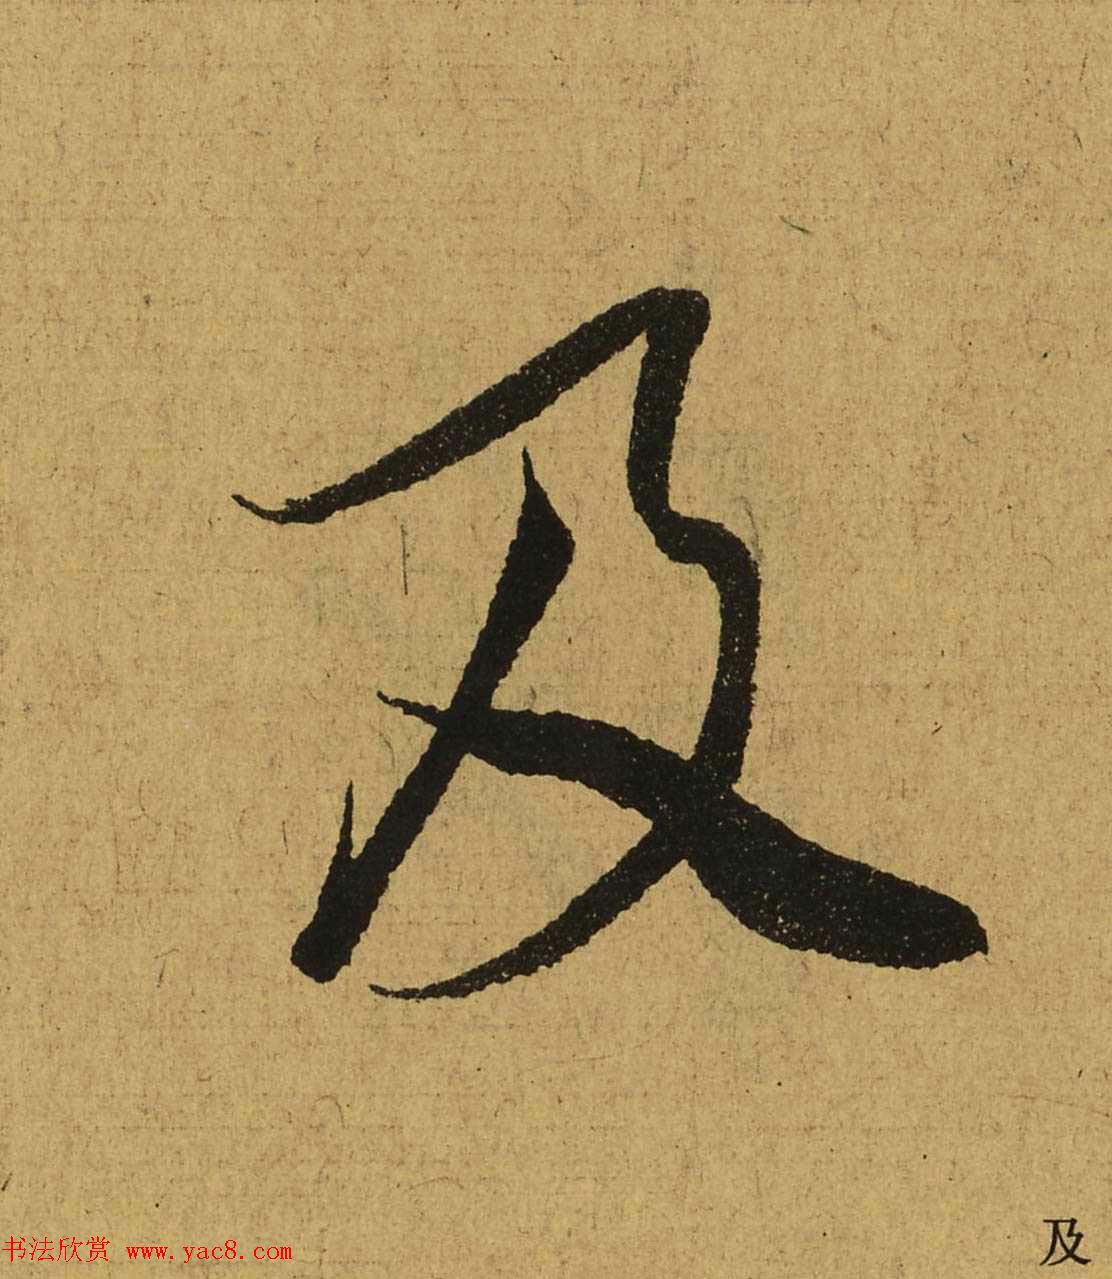 及
书法欣赏 www.yac8.com
及